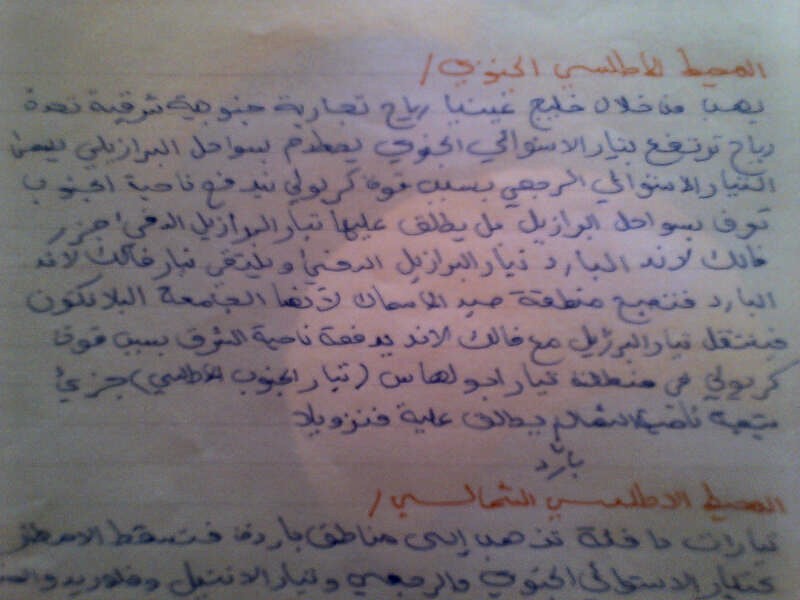 المحيط الأطلسي الجنوبي /
يهب من خلال خليج غينيا رياح تجارية جنوبية شرقية تحدة
رياح ترتفع بتيار الاستوائي الجنوبي يصطدم بسواحل البرازيلي يسمى
التيار الاستوائي الرجعي بسبب قوة كريولي تندفع ناحية الجنوب
توف بسواحل البرازيل يطلق عليها تيار البرازيل الدفئ جزر
فالك لاند البارد تيار البرازيل الدفئ ويلتقى تيار فالك لاند
البارد فتصبح منطقة صيد الاسماك لأنها الجامعة البلانكون
فينتقل تيار البرزيل مع فالك لاند يدفعة ناحية الشرق بسبب قوة
كريولي في منطقة تيار اجولهاس (تيار الجنوب الأطلسي) جزئ
يتجة ناحية الشمال يطلق علية فنزويلا
بارد
المحيط الاطلسي الشمالي /
تيارات دافئة تذهب إلى مناطق باردة فتسقط الامطار
كتيار الاستوائي الجنوبي والرجعي وتيار الانتيل وفلوريدا